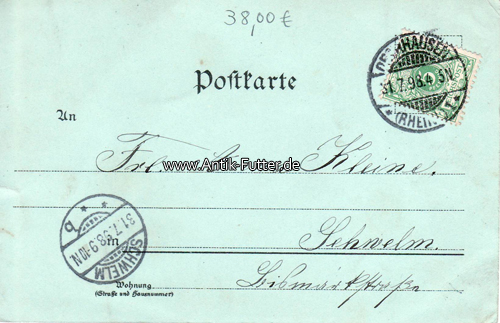 38,00 €
OBERHAUSEN
31.7.98.4-5N
* (RHEINL) *
Postkarte
An
Frl. Kleine.
www.Antik-Futter.de
SCHWELM
31.7.98.9-10N
* b *
in
Schwelm.
Wohnung
(Straße und Hausnummer)
Bismarkstraße